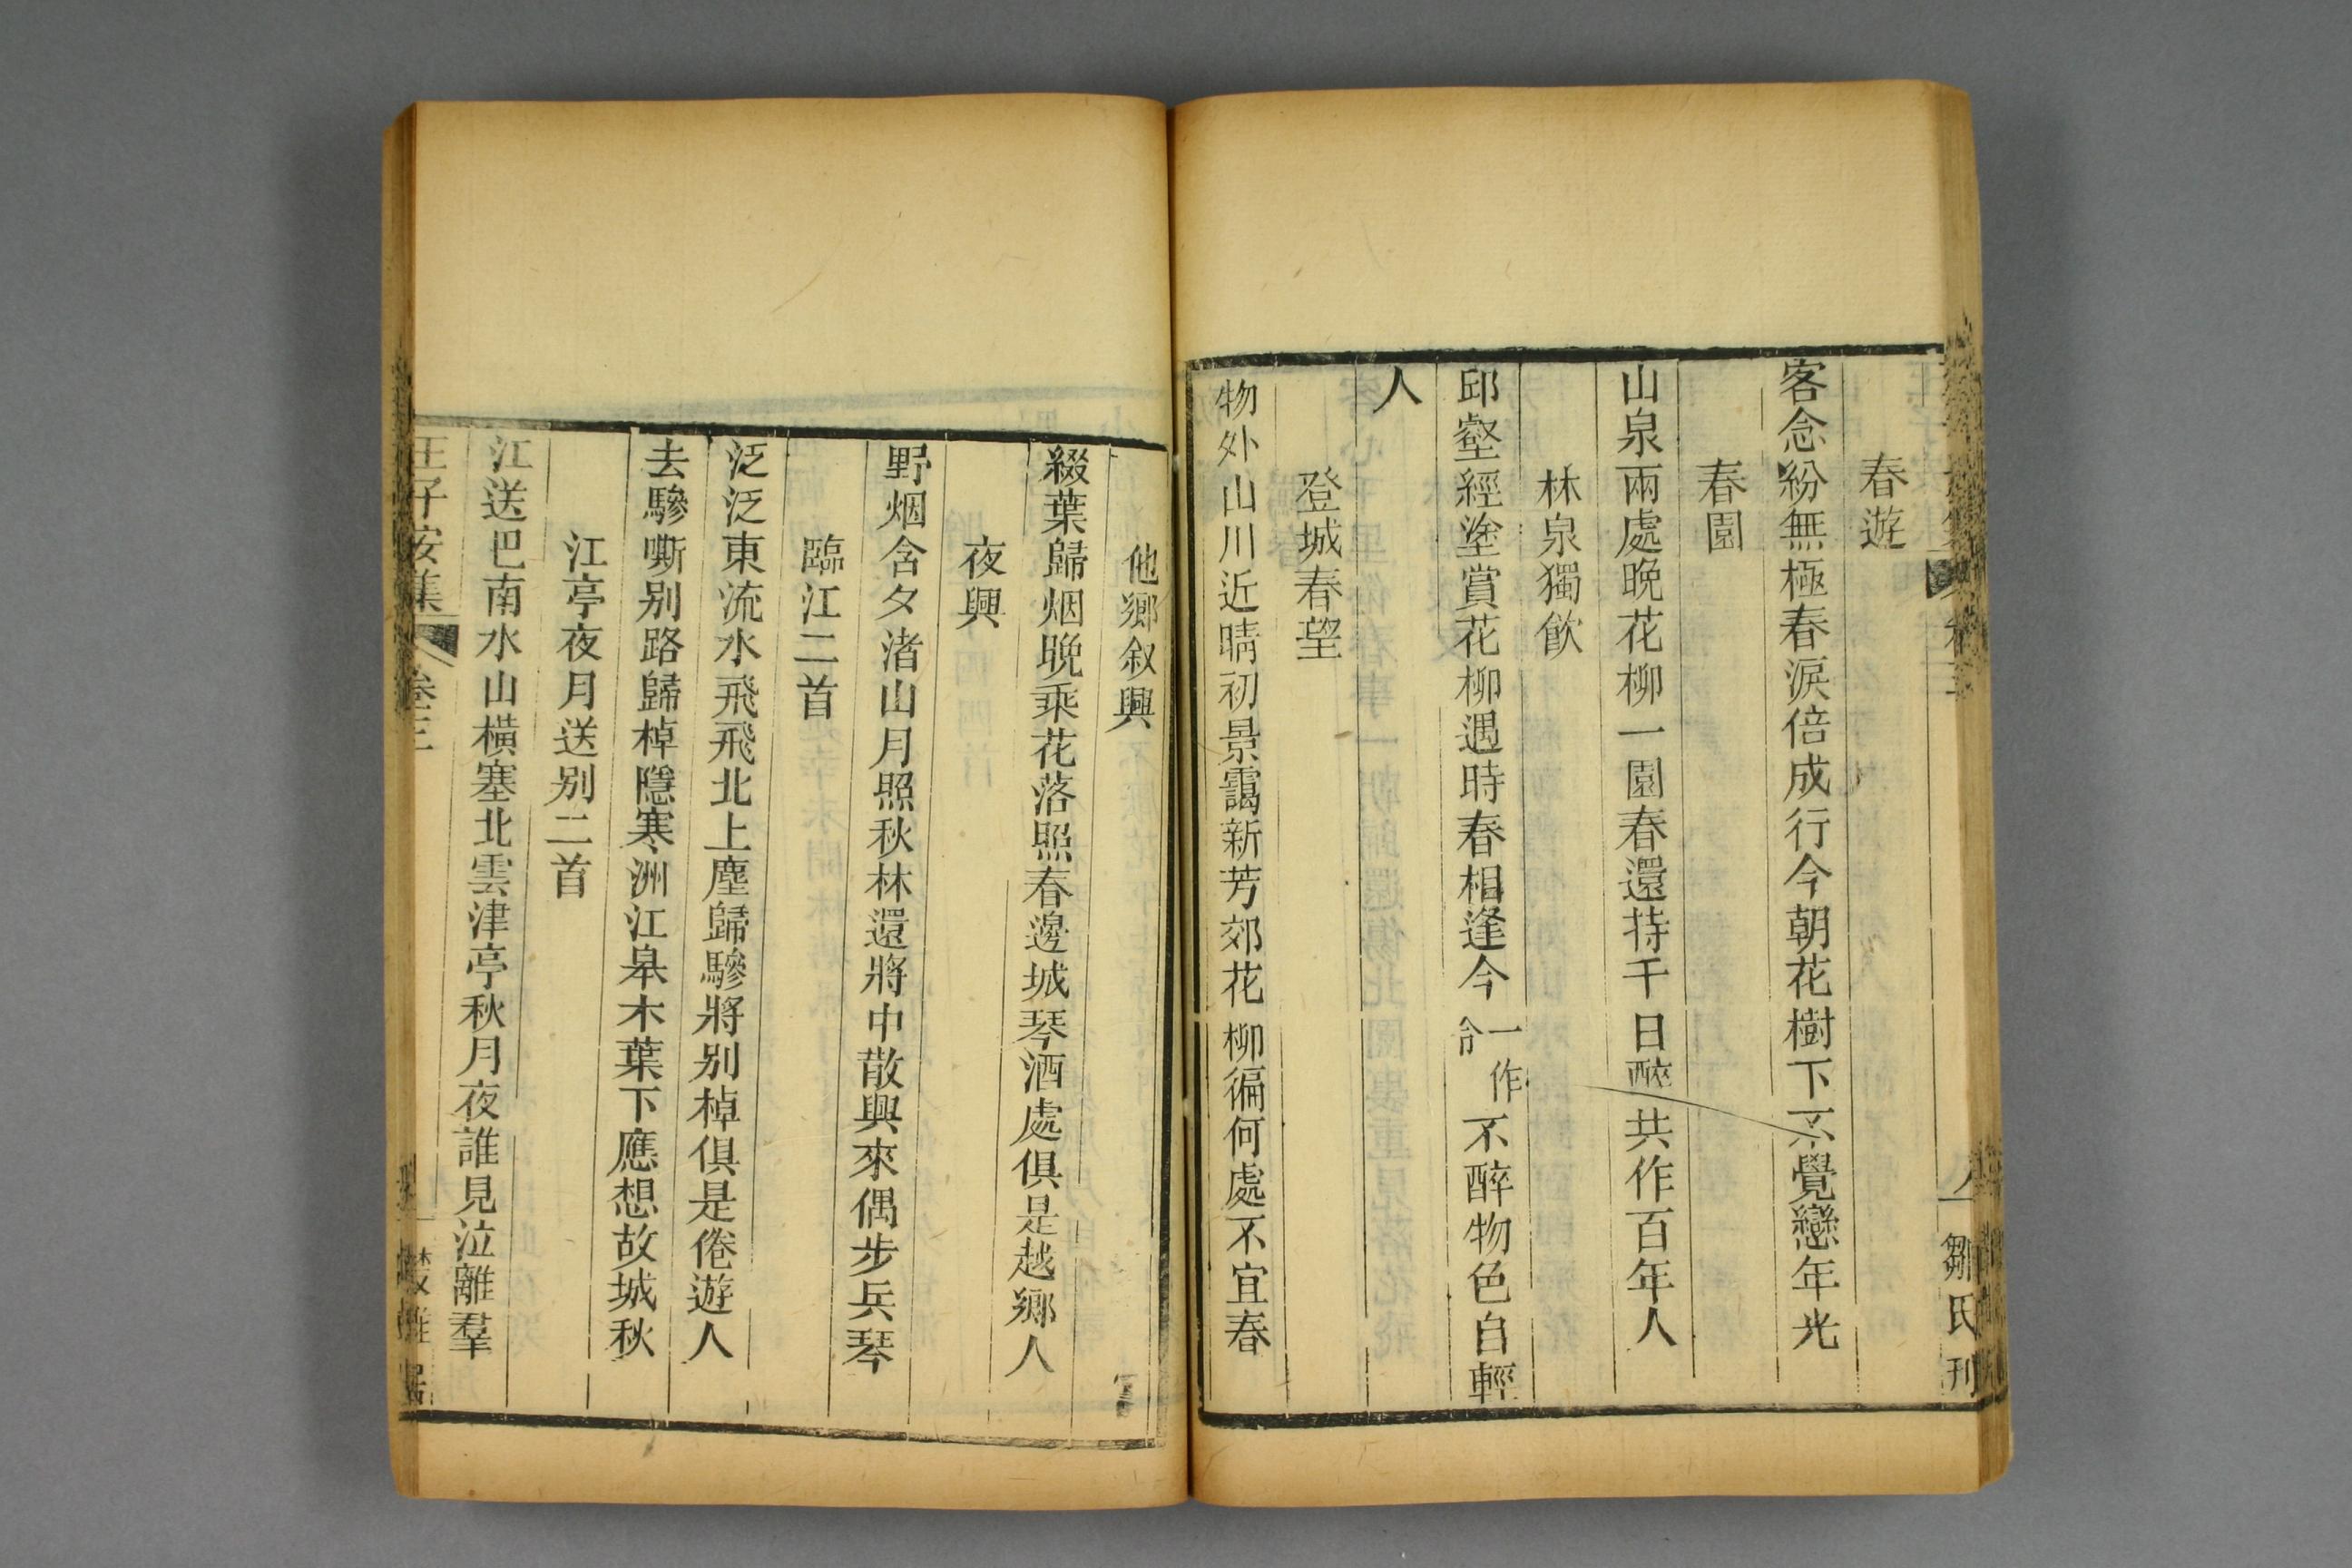 春遊
客念紛無極春淚倍成行今朝花樹下不覺戀年光
春園
山泉兩處晚花柳一園春還持千日醉共作百年人
林泉獨飲
邱壑經塗賞花柳遇時春相逢今一作令不醉物色自輕
人
登城春望
物外山川近晴初景靄新芳郊花柳徧何處不宜春
鄒氏刊
他鄉叙興
綴葉歸烟晚乘花落照春邊城琴酒處俱是越鄉人
夜興
野烟含夕渚山月照秋林還將中散興來偶步兵琴
臨江二首
泛泛東流水飛飛北上塵歸驂將别棹俱是倦遊人
去驂嘶别路歸棹隱寒洲江皋木葉下應想故城秋
江亭夜月送别二首
江送巴南水山橫塞北雲津亭秋月夜誰見泣離羣
王子安集 卷三